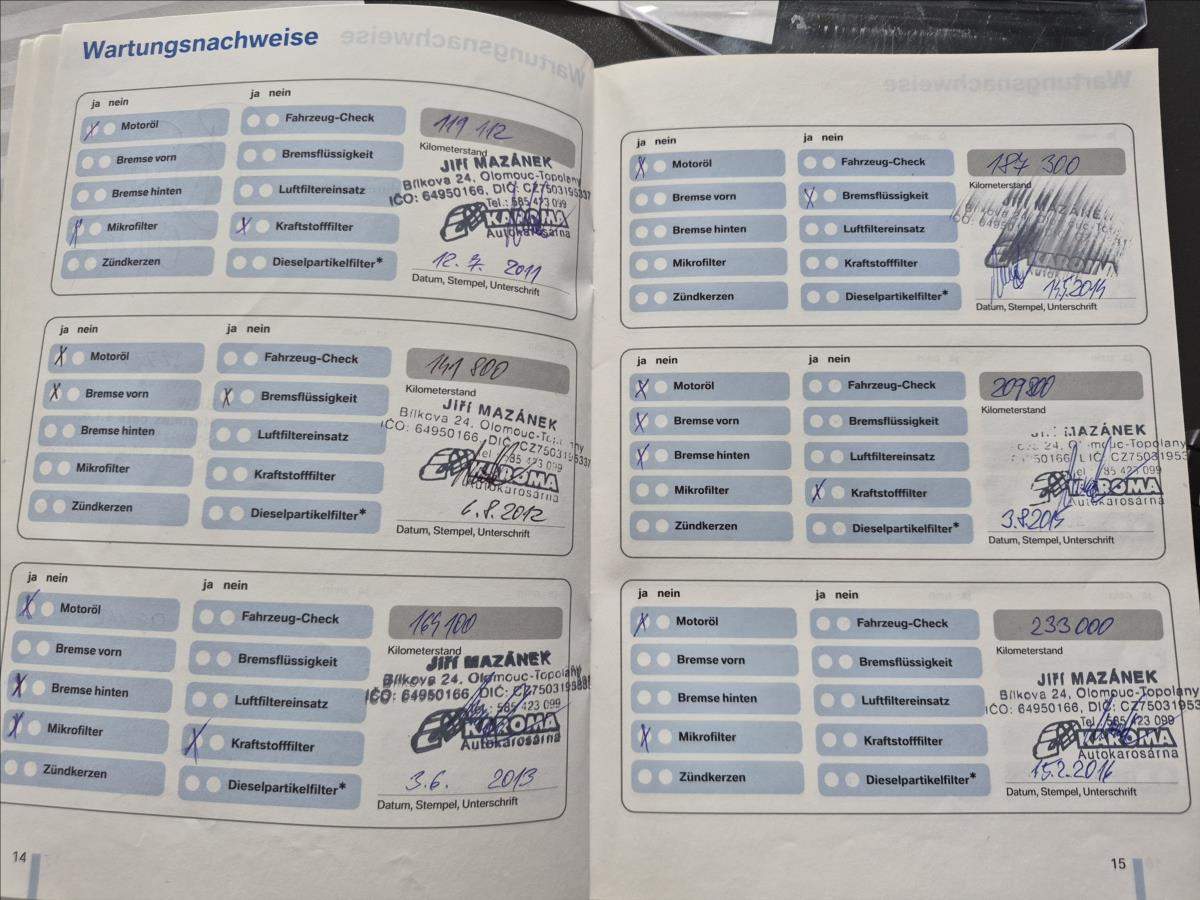 Wartungsnachweise
ja nein
ja nein
X Motoröl
Fahrzeug-Check
119 112
Bremse vorn
Bremsflüssigkeit
Kilometerstand
Bremse hinten
Luftfiltereinsatz
JIŘÍ MAZÁNEK
Bílkova 24, Olomouc-Topolany
IČO: 64950166, DIČ: CZ7503195337
Tel.: 585 423 099
X Mikrofilter
X Kraftstofffilter
KAROMA
Autokarosárna
Zündkerzen
Dieselpartikelfilter*
12. 7. 2011
Datum, Stempel, Unterschrift
ja nein
ja nein
X Motoröl
Fahrzeug-Check
141 800
X Bremse vorn
X Bremsflüssigkeit
Kilometerstand
Bremse hinten
Luftfiltereinsatz
JIŘÍ MAZÁNEK
Bílkova 24, Olomouc-Topolany
IČO: 64950166, DIČ: CZ7503195337
Tel.: 585 423 099
Mikrofilter
Kraftstofffilter
KAROMA
Autokarosárna
Zündkerzen
Dieselpartikelfilter*
6.8.2012
Datum, Stempel, Unterschrift
ja nein
ja nein
X Motoröl
Fahrzeug-Check
164 100
Bremse vorn
Bremsflüssigkeit
Kilometerstand
X Bremse hinten
Luftfiltereinsatz
JIŘÍ MAZÁNEK
Bílkova 24, Olomouc-Topolany
IČO: 64950166, DIČ: CZ7503195337
Tel.: 585 423 099
X Mikrofilter
X Kraftstofffilter
KAROMA
Autokarosárna
Zündkerzen
Dieselpartikelfilter*
3.6. 2013
Datum, Stempel, Unterschrift
14
ja nein
ja nein
X Motoröl
Fahrzeug-Check
187 300
Bremse vorn
X Bremsflüssigkeit
Kilometerstand
Bremse hinten
Luftfiltereinsatz
JIŘÍ MAZÁNEK
Mikrofilter
Kraftstofffilter
Zündkerzen
Dieselpartikelfilter*
Datum, Stempel, Unterschrift
ja nein
ja nein
X Motoröl
Fahrzeug-Check
209800
X Bremse vorn
Bremsflüssigkeit
Kilometerstand
X Bremse hinten
Luftfiltereinsatz
MAZÁNEK
24, Olomouc-Topolany
DIČ: CZ7503195337
Tel.: 585 423 099
Mikrofilter
X Kraftstofffilter
KAROMA
Autokarosárna
Zündkerzen
Dieselpartikelfilter*
3.8.2015
Datum, Stempel, Unterschrift
ja nein
ja nein
X Motoröl
Fahrzeug-Check
233 000
Bremse vorn
Bremsflüssigkeit
Kilometerstand
Bremse hinten
Luftfiltereinsatz
JIŘÍ MAZÁNEK
Bílkova 24, Olomouc-Topolany
IČO: 64950166, DIČ: CZ750319533
Tel.: 585 423 099
X Mikrofilter
Kraftstofffilter
KAROMA
Autokarosárna
Zündkerzen
Dieselpartikelfilter*
15.2.2016
Datum, Stempel, Unterschrift
15